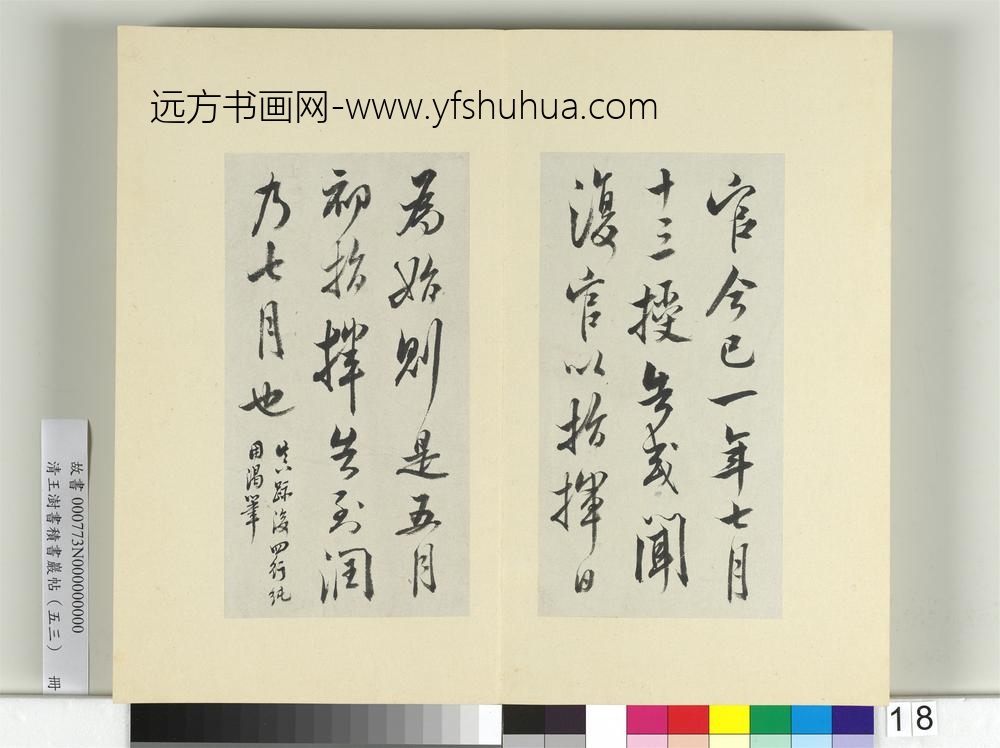 远方书画网-www.yfshuhua.com
官今已一年七月
十三授告或聞
復官以指揮日
為始則是五月
初指揮告到潤
乃七月也
真跡後四行純
用渴筆
故書 000773N000000000
清王澍書積書巖帖(五三) 冊
18